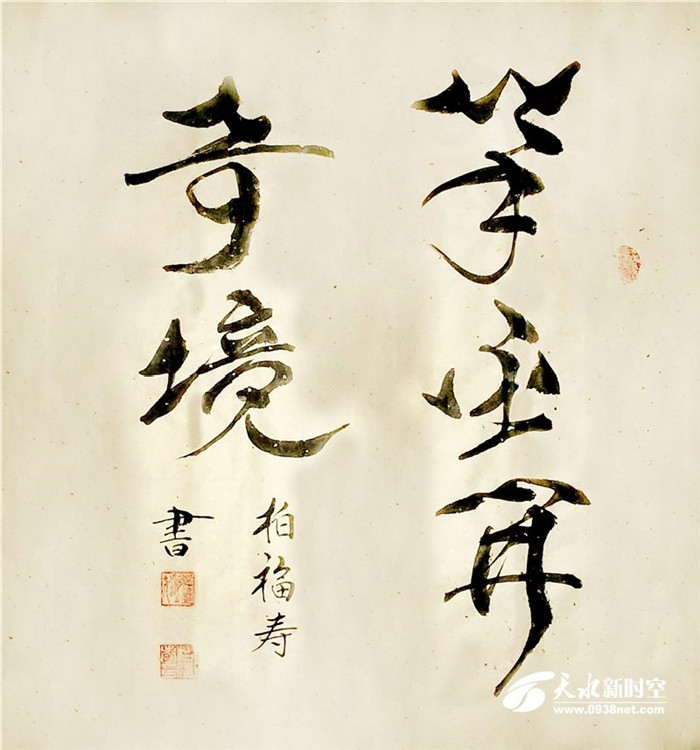 筆開
奇境
柏福寿
書
天水新时空
www.0938net.com